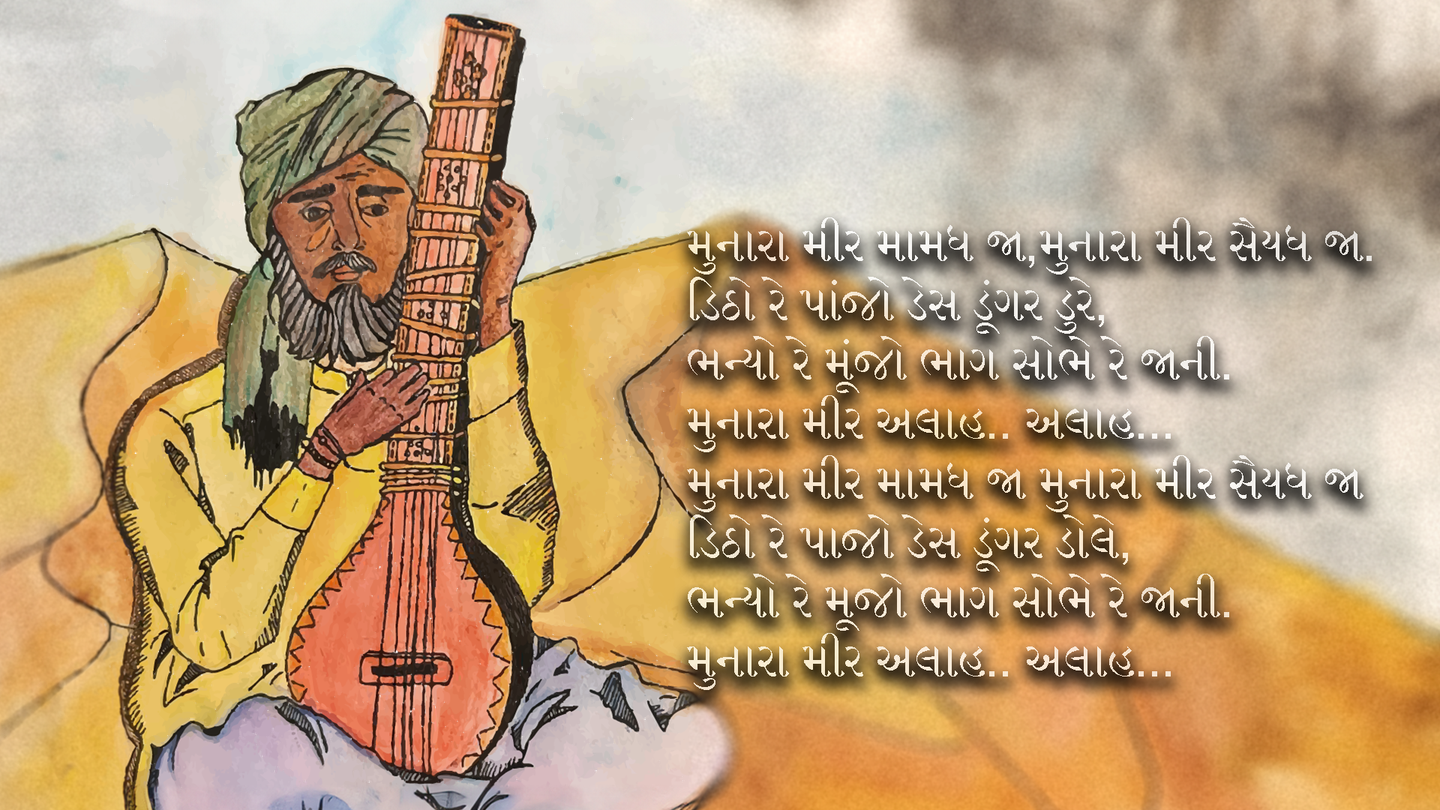 મુનારા મીર મામધ જા,મુનારા મીર સૈયધ જા.
ડિઠો રે પાંજો ડેસ ડૂંગર ડુરે,
ભન્યો રે મૂંજો ભાગ સોભે રે જાની.
મુનારા મીર અલાહ.. અલાહ...
મુનારા મીર મામધ જા મુનારા મીર સૈયધ જા
ડિઠો રે પાજો ડેસ ડૂંગર ડોલે,
ભન્યો રે મૂજો ભાગ સોભે રે જાની.
મુનારા મીર અલાહ.. અલાહ...